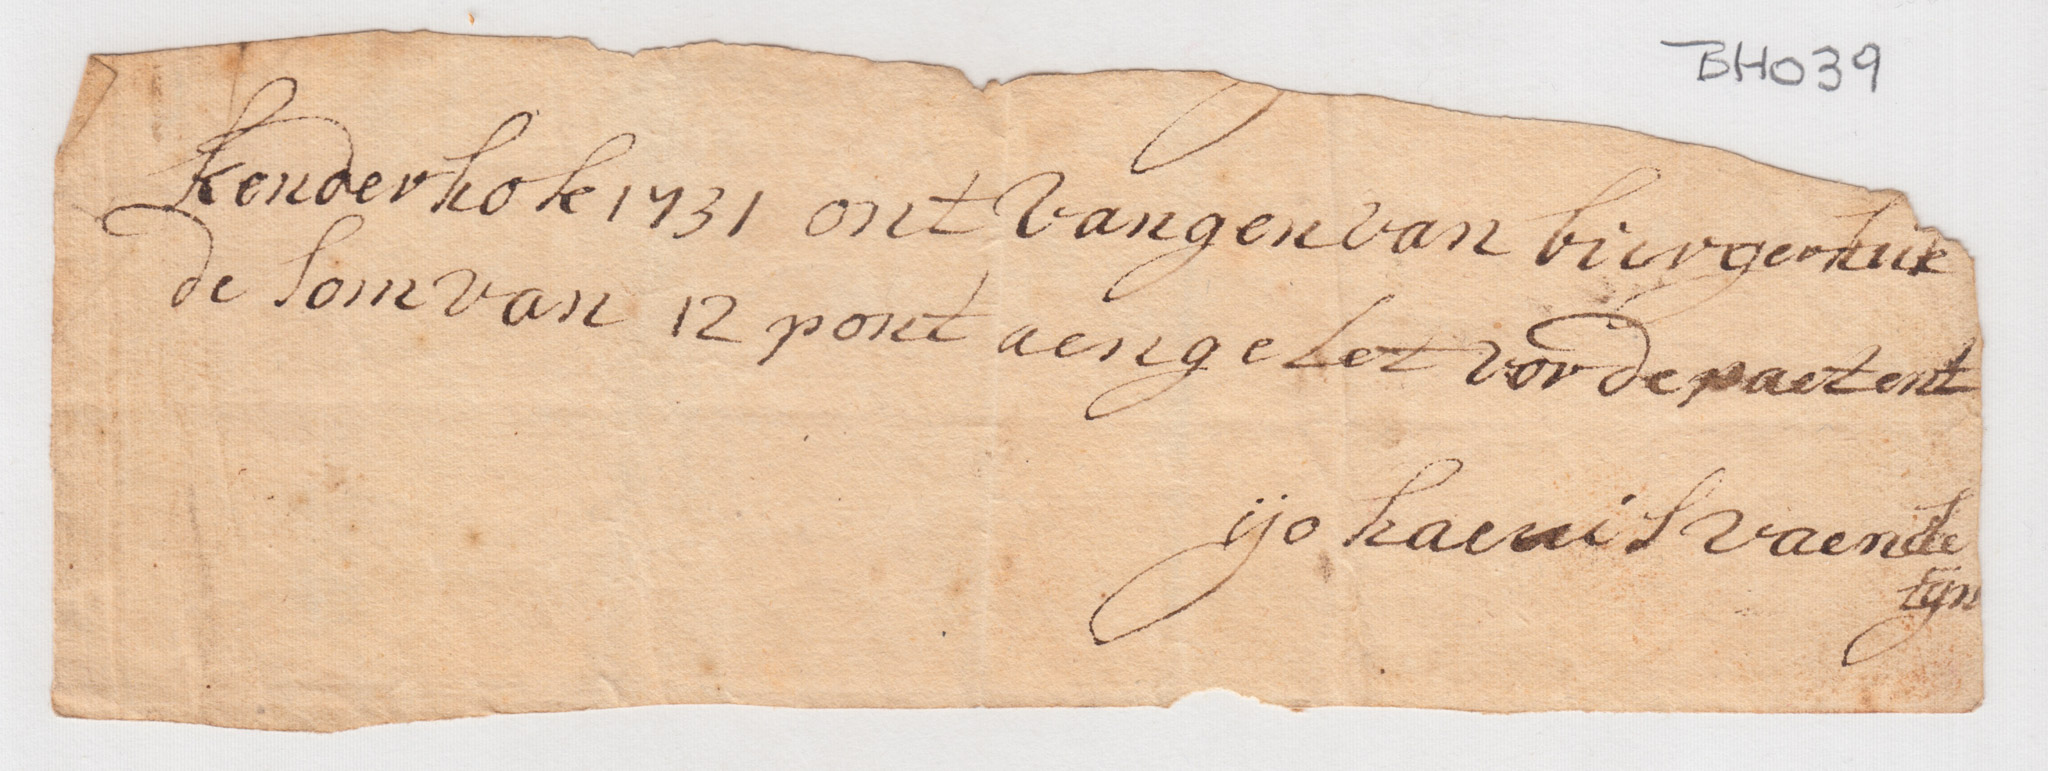 BH039
kenderhok 1731 ont vangen van biurgerhuk
de som van 12 pont aengelet vor de paetent
ijohaenis vaende
tÿn